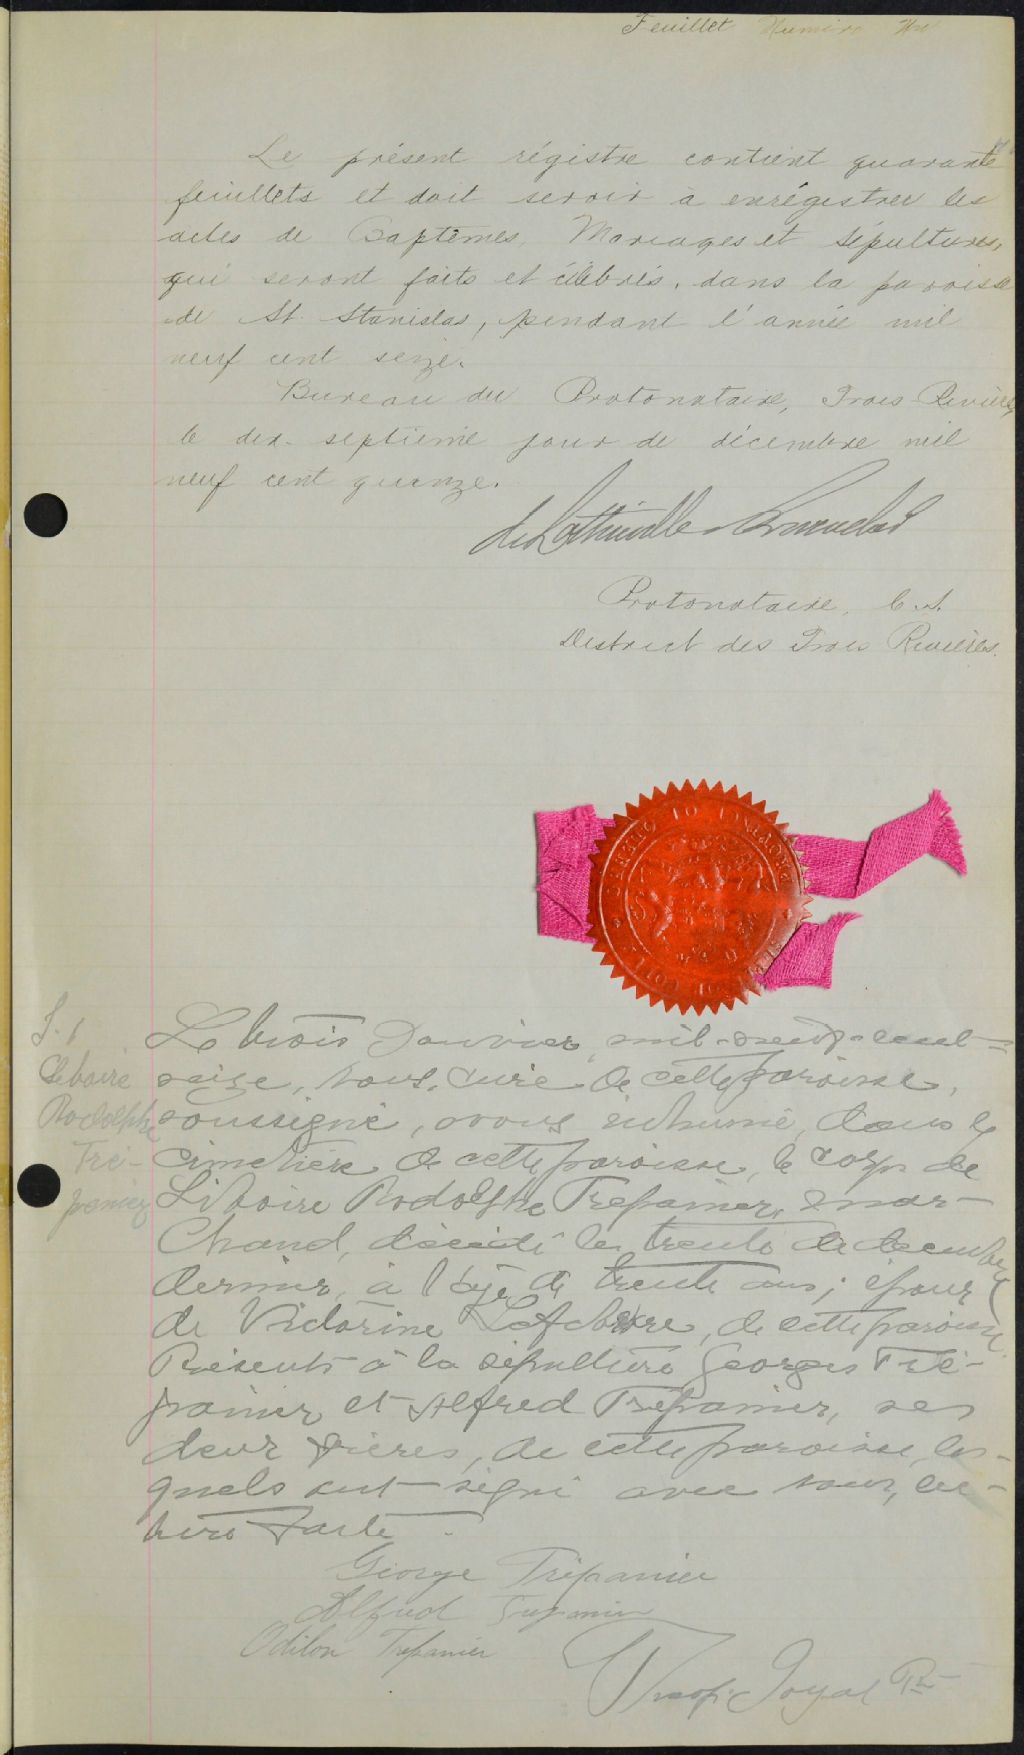 Feuillet Numéro Un
Le présent régistre contient quarante
feuillets et doit servir à enrégistrer les
actes de Baptêmes, Mariages et Sépultures,
qui seront faits et célébrés, dans la paroisse
de St. Stanislas, pendant l'année mil
neuf cent seize.
Bureau du Protonotaire, Trois-Rivières
le dix-septième jour de décembre mil
neuf cent quinze.
Protonotaire, C.S.
District des Trois Rivières.
S. 1
Liboire
Rodolphe
Tré-
panier
Le trois Janvier mil-neuf-cent-
seize, nous, curé de cette paroisse,
soussigné, avons inhumé, dans le
cimetière de cette paroisse, le corps de
Liboire Rodolphe Trépanier, mar-
chand, décédé le trente de décembre
dernier, à l'âge de trente ans; époux
de Victorine Lefebvre, de cette paroisse.
Présents à la sépulture Georges Tré-
panier et Alfred Trépanier, ses
deux frères, de cette paroisse, les-
quels ont signé avec nous, lec-
ture faite.
George Trépanier
Alfred Trepanier
Odilon Trépanier
Joyal Ptre